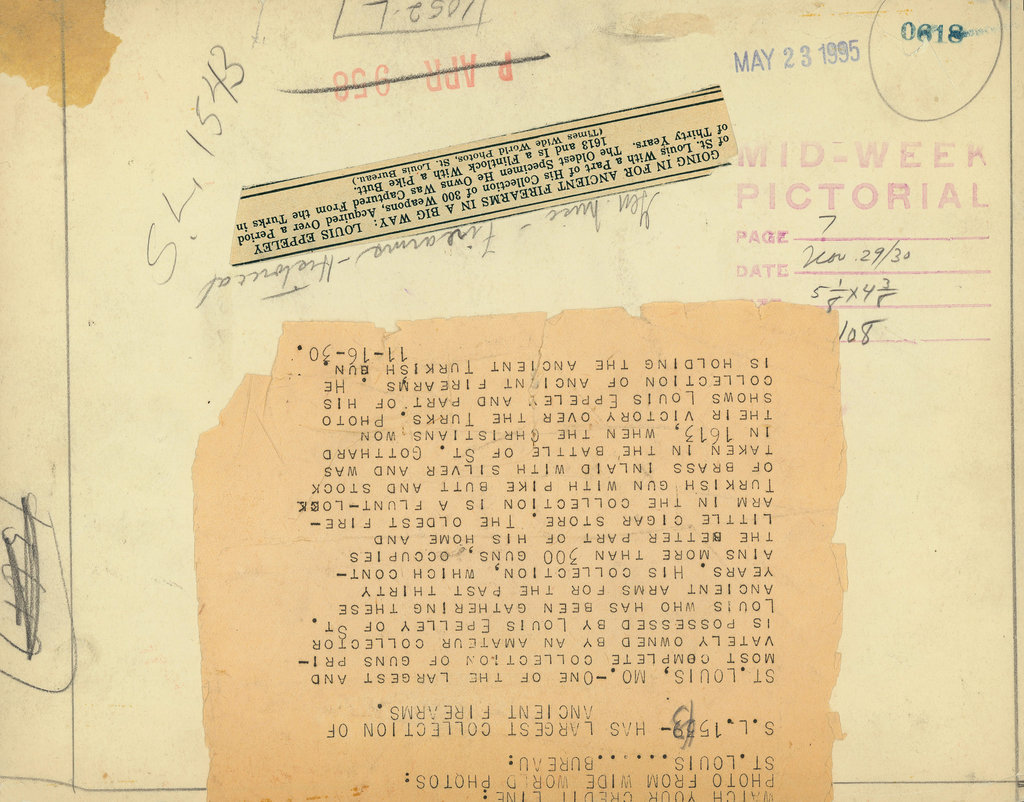 1052-L
P APR 9 58
S.L. 1543
MAY 23 1995
0618
MID-WEEK
PICTORIAL
PAGE 7
DATE Nov. 29/30
5 1/8 x 4 3/8
108
GOING IN FOR ANCIENT FIREARMS IN A BIG WAY: LOUIS EPPELEY
of St. Louis With a Part of His Collection of 300 Weapons, Acquired Over a Period
of Thirty Years. The Oldest Specimen He Owns Was Captured From the Turks in
1613 and Is a Flintlock With a Pike Butt.
(Times Wide World Photos, St. Louis Bureau.)
Gen. Misc - Firearms - Historical
WATCH YOUR CREDIT LINE:
PHOTO FROM WIDE WORLD PHOTOS:
ST.LOUIS......BUREAU:
S.L.1543- HAS LARGEST COLLECTION OF
ANCIENT FIREARMS.
ST.LOUIS, MO.-ONE OF THE LARGEST AND
MOST COMPLETE COLLECTION OF GUNS PRI-
VATELY OWNED BY AN AMATEUR COLLECTOR
IS POSSESSED BY LOUIS EPELLEY OF ST.
LOUIS WHO HAS BEEN GATHERING THESE
ANCIENT ARMS FOR THE PAST THIRTY
YEARS. HIS COLLECTION, WHICH CONT-
AINS MORE THAN 300 GUNS, OCCUPIES
THE BETTER PART OF HIS HOME AND
LITTLE CIGAR STORE. THE OLDEST FIRE-
ARM IN THE COLLECTION IS A FLUNT-LOCK
TURKISH GUN WITH PIKE BUTT AND STOCK
OF BRASS INLAID WITH SILVER AND WAS
TAKEN IN THE BATTLE OF ST. GOTTHARD
IN 1613, WHEN THE CHRISTIANS WON
THEIR VICTORY OVER THE TURKS. PHOTO
SHOWS LOUIS EPPELEY AND PART OF HIS
COLLECTION OF ANCIENT FIREARMS. HE
IS HOLDING THE ANCIENT TURKISH GUN.
11-16-30.